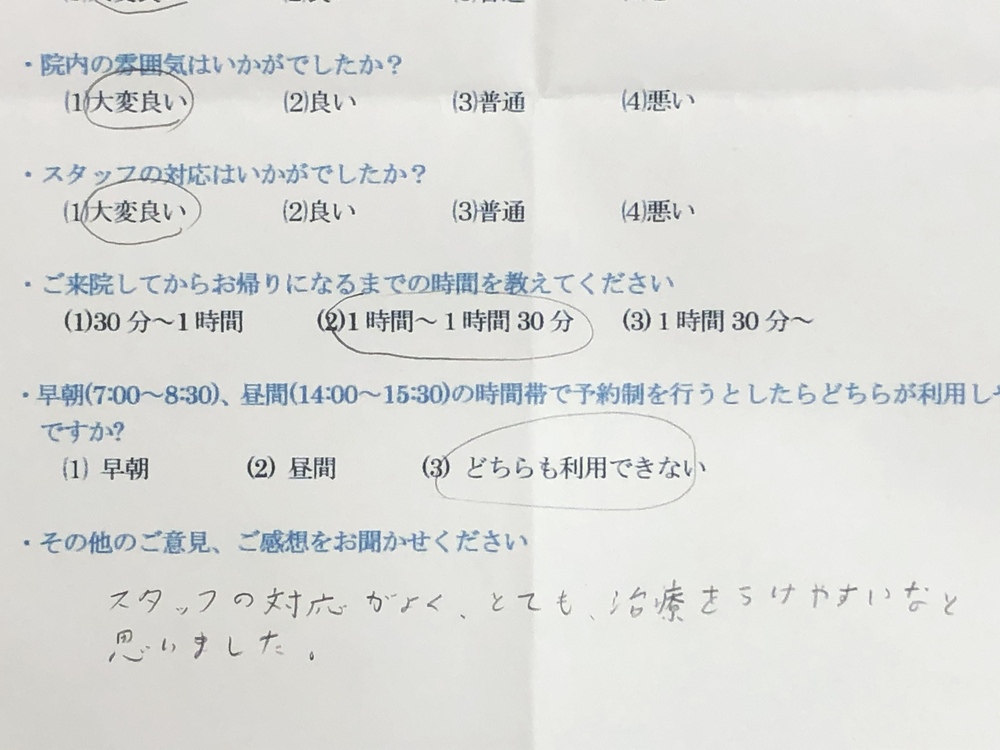 ・院内の雰囲気はいかがでしたか？
(1)大変良い (2)良い (3)普通 (4)悪い
・スタッフの対応はいかがでしたか？
(1)大変良い (2)良い (3)普通 (4)悪い
・ご来院してからお帰りになるまでの時間を教えてください
(1)30分～1時間 (2)1時間～1時間30分 (3)1時間30分～
・早朝(7:00～8:30)、昼間(14:00～15:30)の時間帯で予約制を行うとしたらどちらが利用し
ですか?
(1) 早朝 (2) 昼間 (3) どちらも利用できない
・その他のご意見、ご感想をお聞かせください
スタッフの対応がよく、とても、治療をうけやすいなと
思いました。